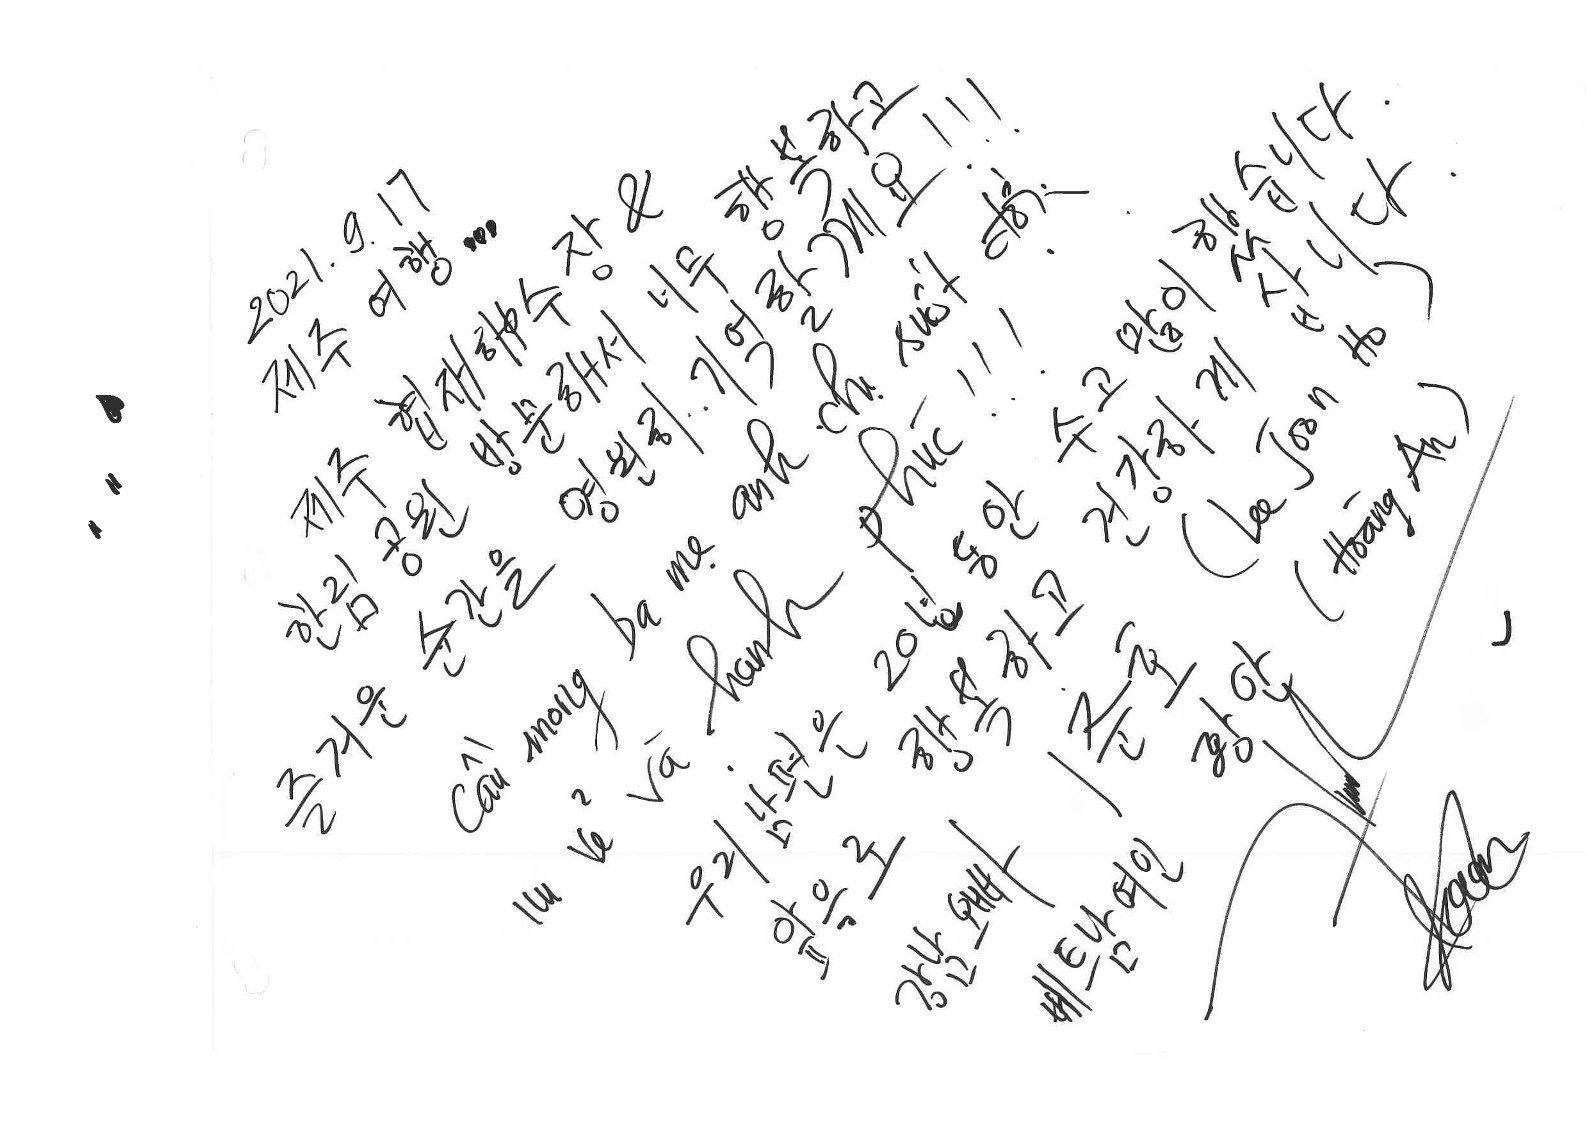 2021. 9. 17
제주 여행 ...
제주 협재해수장 &
한림공원 방문해서 너무 행복하고
즐거운 순간을 영원히.. 기억할게요!!!
Cầu mong ba mẹ anh chị suốt đời
vui vẻ và hạnh phúc!!!
우리 남편은 20년 동안 수고 많이 했습니다.
앞으로 행복하고 건강하게 삽시다.
강남오빠 / 준호 (Lee Joon Ho)
베트남여인 황안 (Hoàng An)